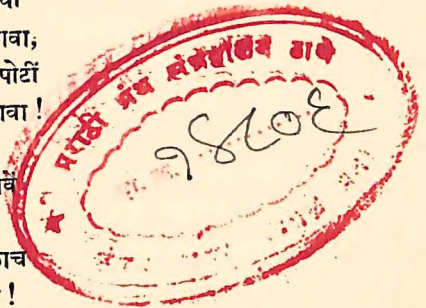 वा;
पोटीं
वा !
मराठी ग्रंथ संग्रहालय ठाणे
१४८०६
वें
ाच
!